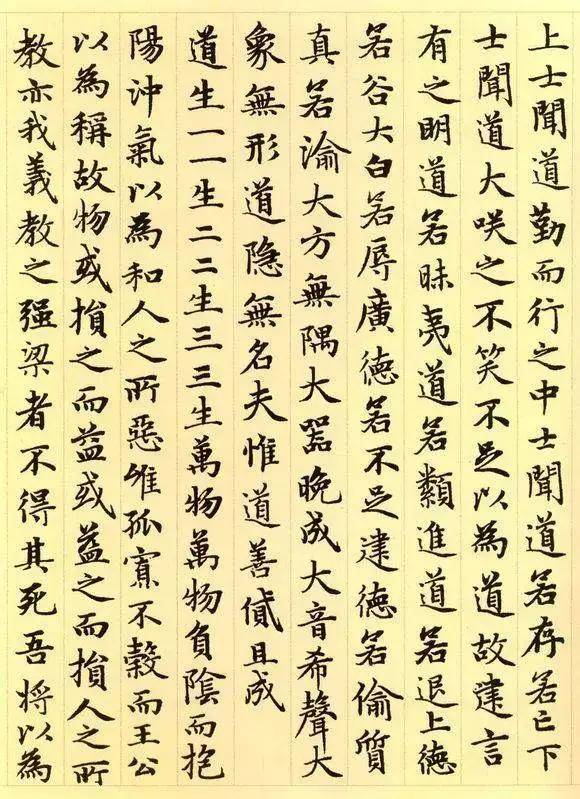 上士聞道勤而行之中士聞道若存若亡下
士聞道大咲之不笑不足以為道故建言
有之明道若昧夷道若纇進道若退上德
若谷大白若辱廣德若不足建德若偷質
真若渝大方無隅大器晚成大音希聲大
象無形道隐無名夫惟道善貸且成
道生一一生二二生三三生萬物萬物負陰而抱
陽沖氣以為和人之所惡惟孤寡不穀而王公
以為稱故物或損之而益或益之而損人之所
教亦我義教之强梁者不得其死吾将以為